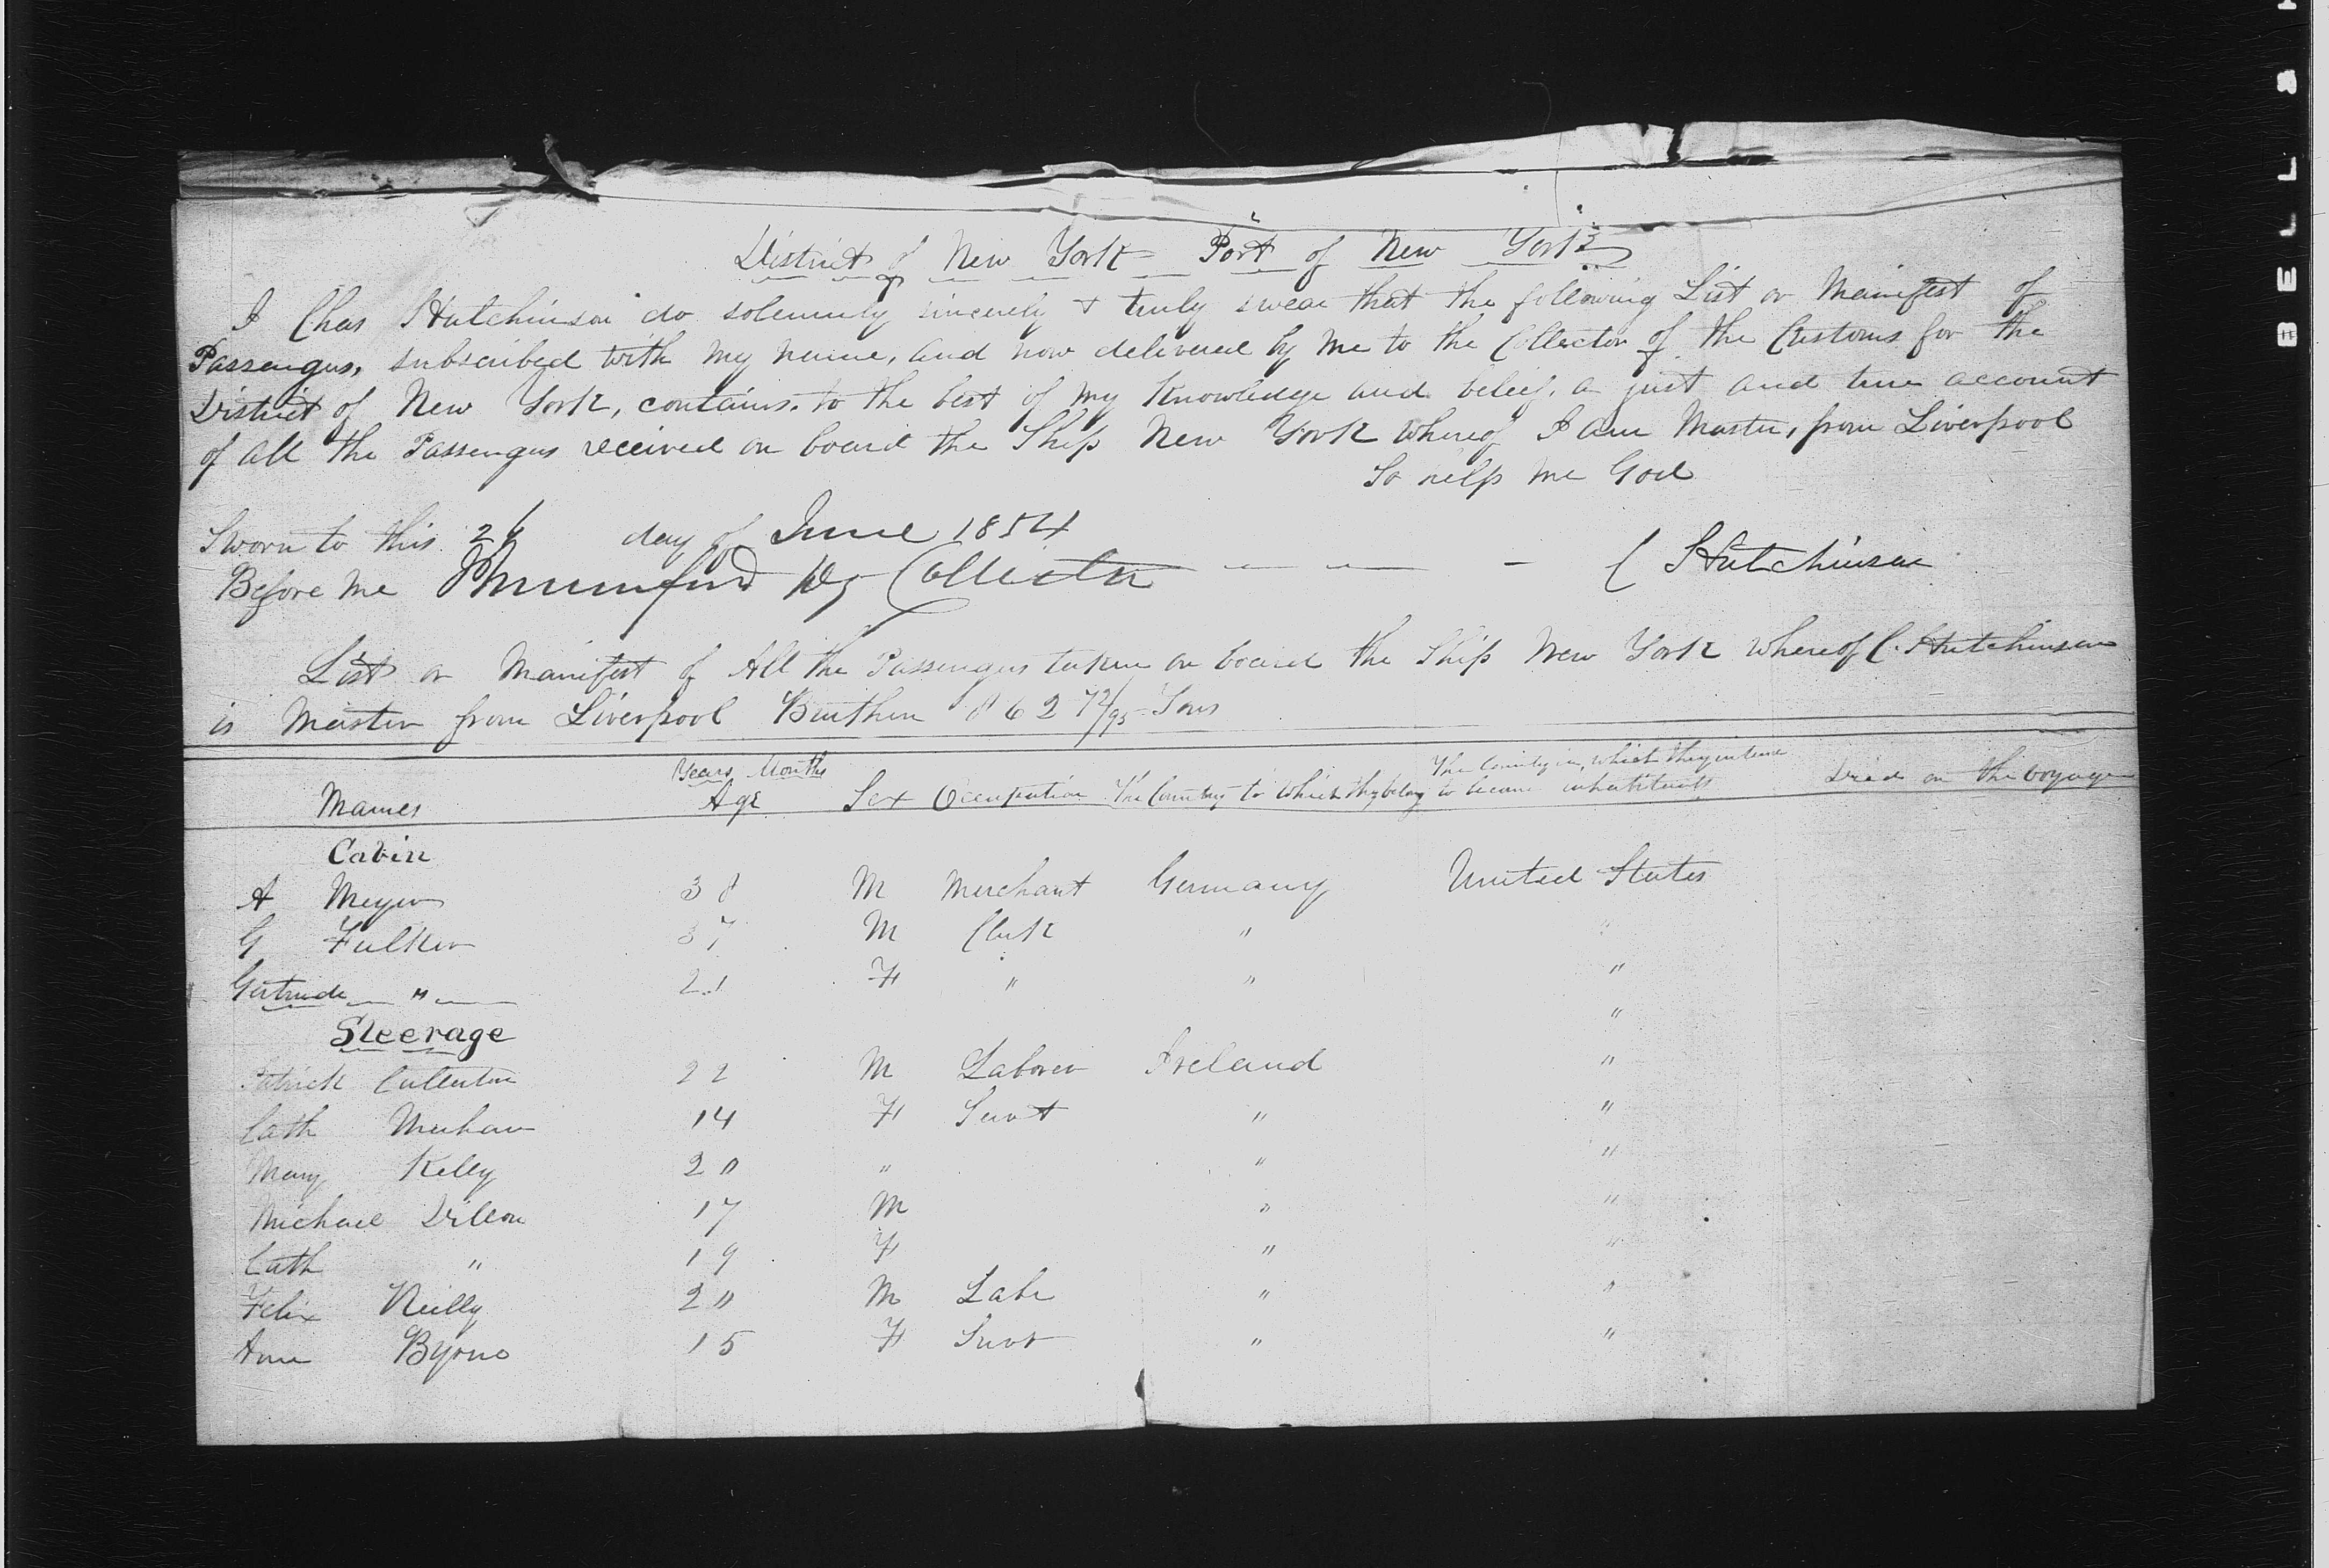 District of New York Port of New York
I Chas Hutchinson do solemnly sincerely & truly swear that the following List or Manifest of
Passengers, subscribed with my name, and now delivered by me to the Collector of the Customs for the
District of New York, contains, to the best of my knowledge and belief, a just and true account
of all the Passengers received on board the Ship New York whereof I am Master, from Liverpool
So help me God
Sworn to this 26 day of June 1854
Before me Collector C Hutchinson
List or Manifest of All the Passengers taken on board the Ship New York whereof C. Hutchinson
is Master from Liverpool Burthen 862 72/95 Tons
Years Months The Country in which they intend
Names Age Sex Occupation The Country to which they belong to become inhabitants Died on the voyage
Cabin
A Meyer 38 M Merchant Germany United States
G Fulker 37 M Clerk " "
Gertrude " 21 F " " "
Steerage "
Patrick Cullerton 22 M Laborer Ireland "
Cath Meehan 14 F Servt " "
Mary Kelly 20 " " "
Michael Dillon 17 M " "
Cath " 19 F " "
Felix Reilly 20 M Labr " "
Ann Byrne 15 F Servt " "
BELL &